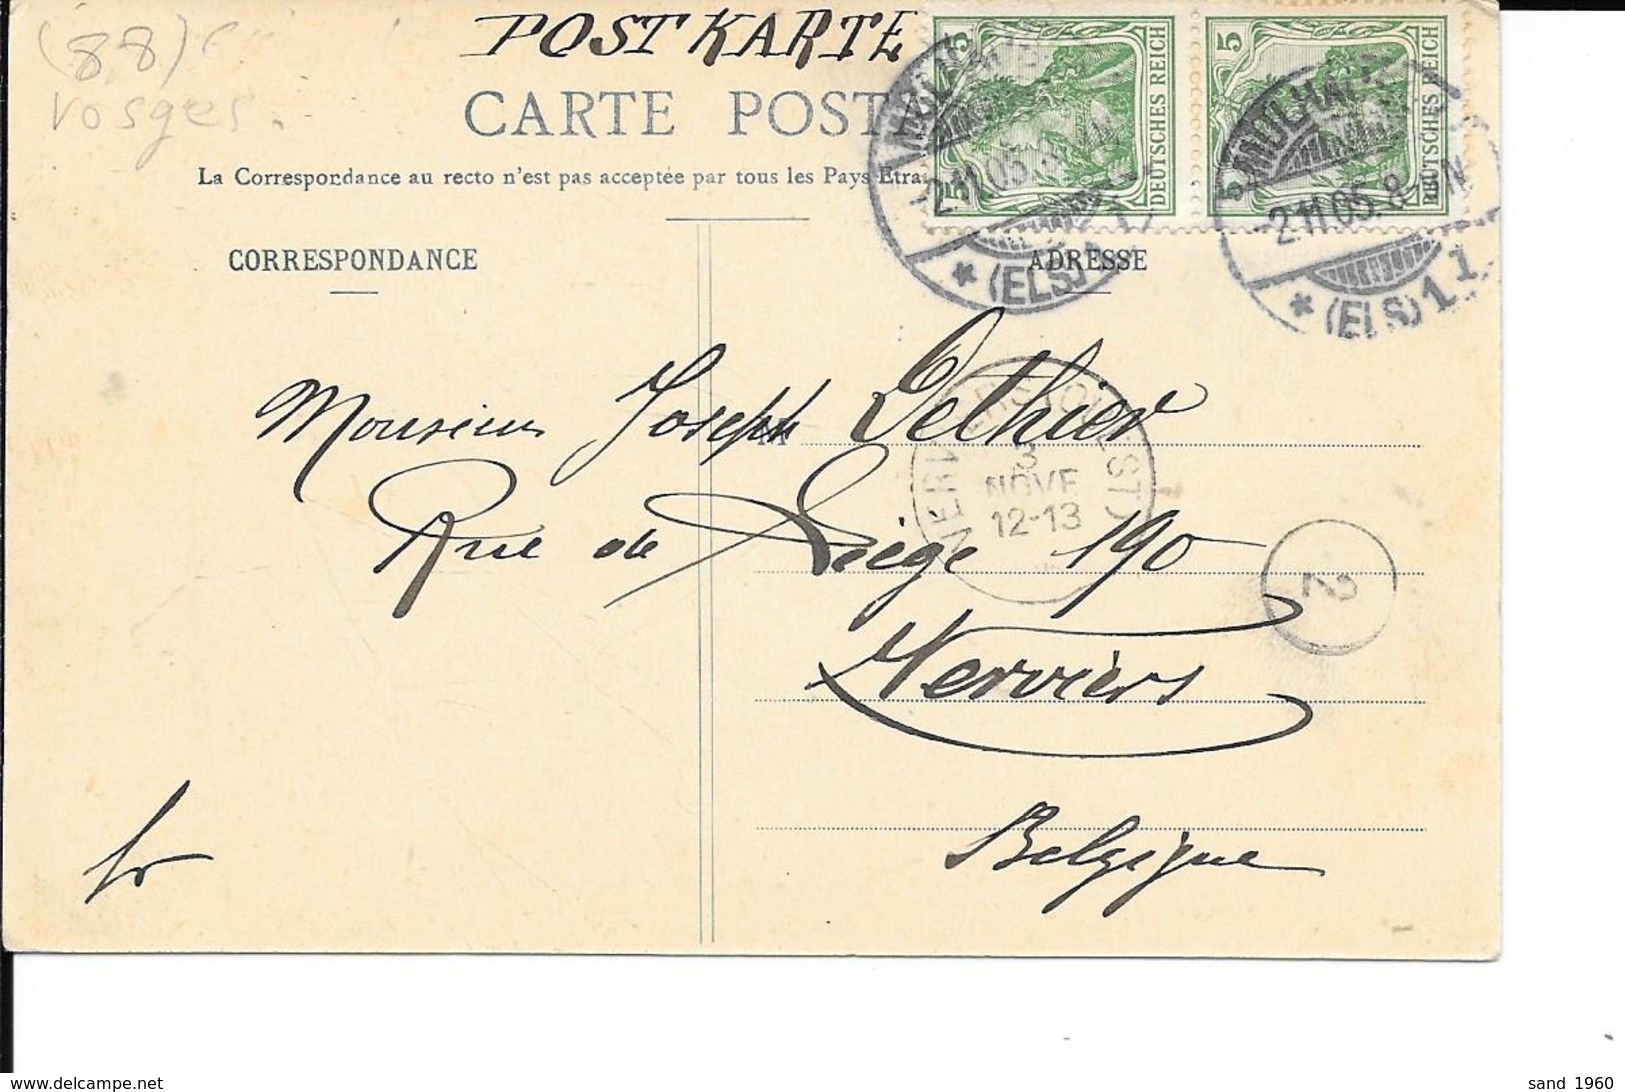 (88)
Vosges.
POSTKARTE
CARTE POST
La Correspondance au recto n'est pas acceptée par tous les Pays Etra
5 DEUTSCHES REICH
5 DEUTSCHES REICH
2.11.05.8
(ELS)
MÜLHA
2.11.05.8-9N
* (ELS) 1.1.
CORRESPONDANCE
ADRESSE
Monsieur Joseph Dethier
M
Rue de Liége 190
Verviers
Belgique
3
NOVE
12-13
2
www.delcampe.net
sand_1960